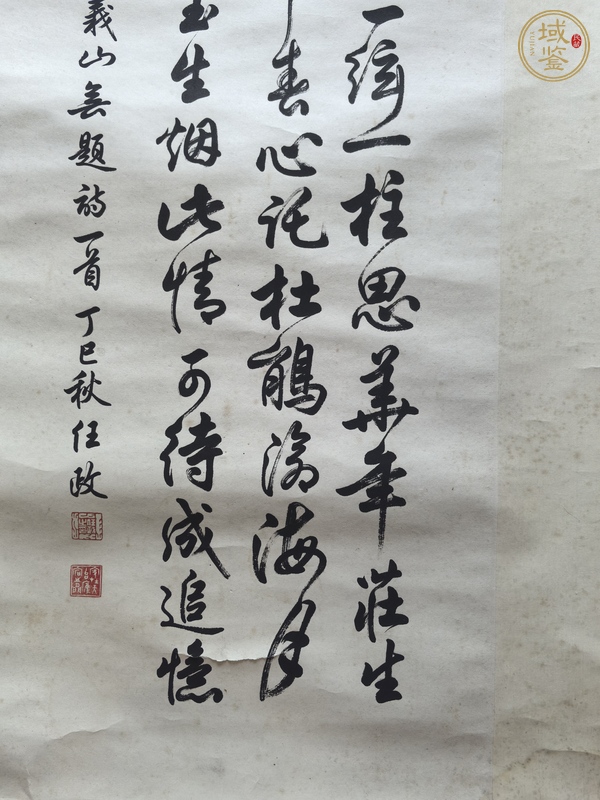 一弦一柱思華年莊生
春心託杜鵑滄海月
玉生烟此情可待成追憶
義山無題詩一首丁巳秋任政
域鉴